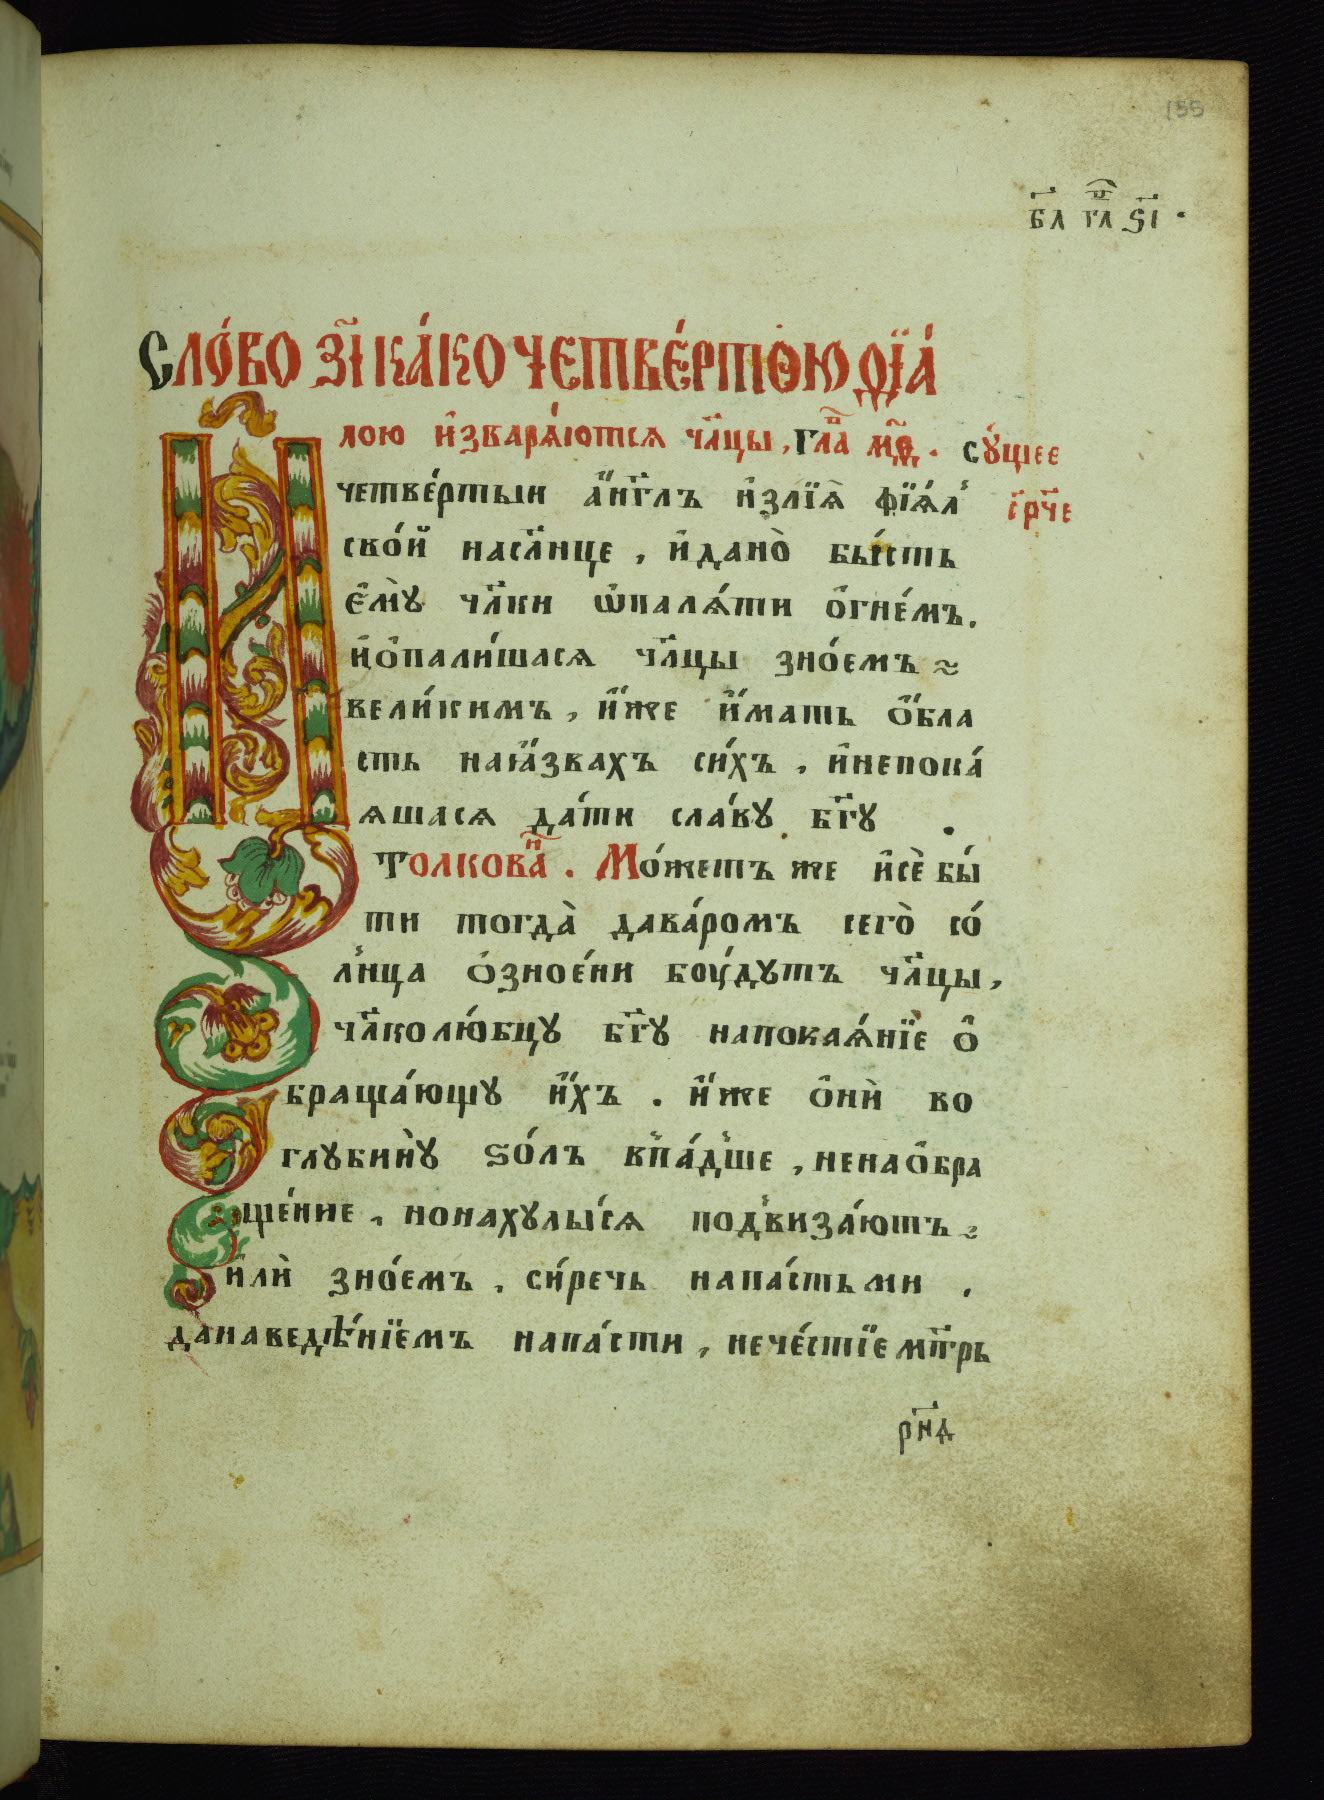 155
бл҃ гл҃ ѕ҃і ·
Сло́во з҃і ка́ко четве́ртою фїа́
лою и҆зваря́ются чл҃цы, гла̑ м҃ѳ . су́щее
четве́ртыи а҆́нг҃лъ и҆злїѧ̀ фїѧ́л
с҃рч҃е
сво́й насл҃нце , и҆дано̀ бы́сть
є҆мꙋ̀ чл҃ки ѡ҆палѧ́ти о҆гне́мъ.
и҆о҆пали́шасѧ чл҃цы зно́емъ ~
вели́кимъ , и҆́же и҆́мать о҆́бла
сть наꙗ҆́звахъ си́хъ , и҆непока́
ѧшасѧ да́ти сла́вꙋ бг҃ꙋ .
Толкова̑н . Мо́жетъ же и҆сѐ бы́
ти тогда̀ дава́ромъ сего̀ со́
лнца о҆зное́ни боу́дꙋтъ чл҃цы ,
чл҃колю́бцꙋ бг҃ꙋ напокаѧ́нїе о҆
браща́ющꙋ и҆́хъ . и҆́же о҆нѝ во
глꙋбинꙋ̀ ѕо́лъ впа́дше , ненао҆бра
ще́ние , нонахꙋлы́сѧ подвиза́ютъ ~
и҆лѝ зно́емъ , си́речь напа́стьми ,
данаведѣ́нїемъ напа́сти , нече́стїе мт҃рь
рн҃д